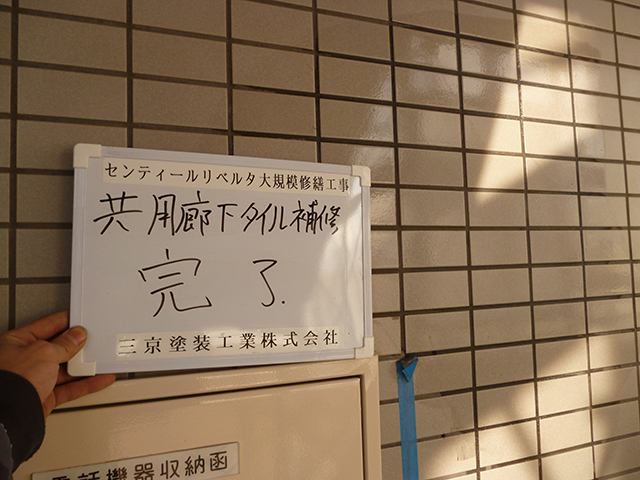 センティールリベルタ大規模修繕工事
共用廊下タイル補修
完了.
三京塗装工業株式会社
電話機器収納函